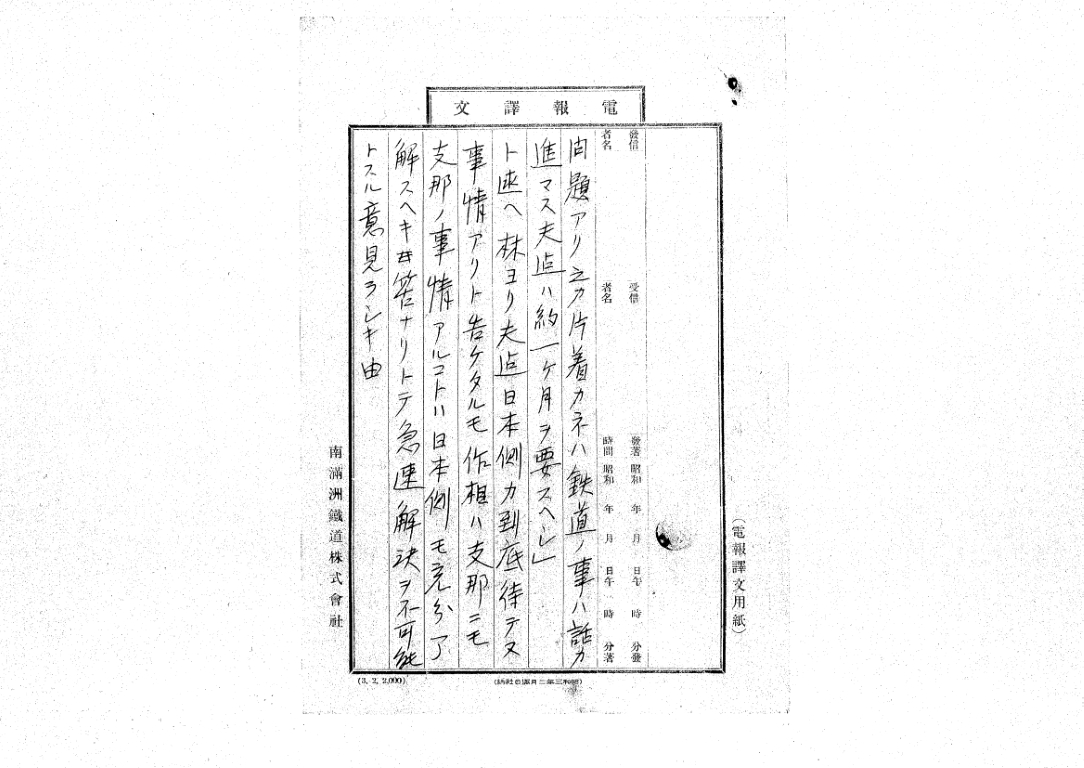 電報譯文
(電報譯文用紙)
發信者名
受信者名
發著時間 昭和 年 月 日午 時 分發
昭和 年 月 日午 時 分著
問題アリ之カ片着カネハ鉄道ノ事ハ話カ
進マス夫迠ハ約一ケ月ヲ要スヘシ」
ト述ヘ林ヨリ夫迠日本側カ到底待テヌ
事情アリト告ケタルモ作相ハ支那ニモ
支那ノ事情アルコトハ日本側ノモ充分了
解スヘキ筈ナリトテ急速解決ヲ不可能
トスル意見ラシキ由
南滿洲鐵道株式會社
(3. 2. 2,000)